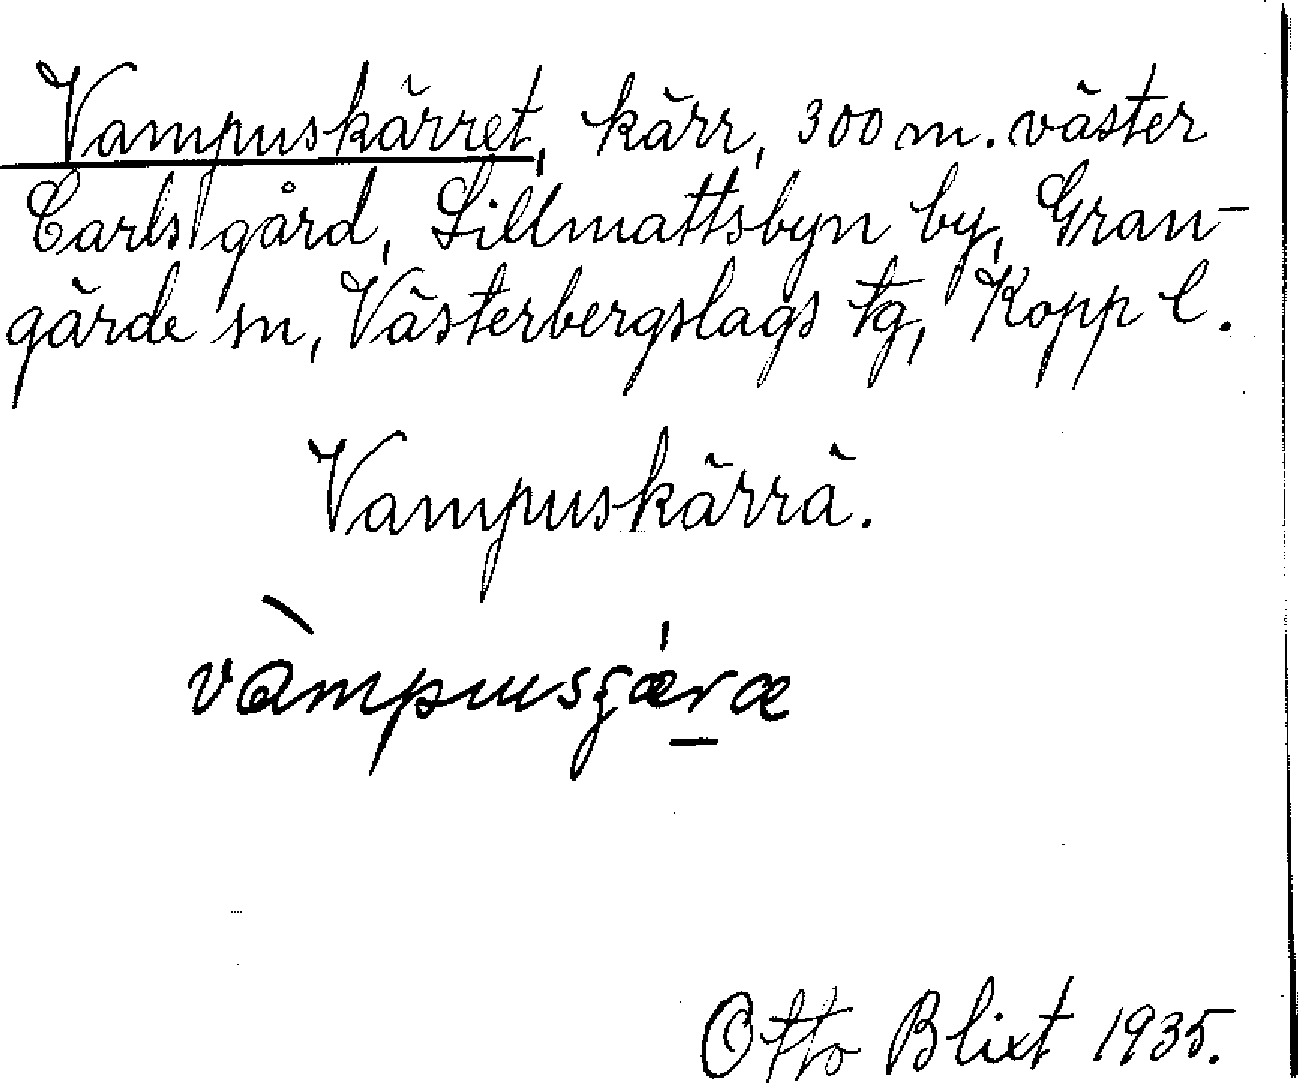 Vampuskärret, kärr, 300 m. väster
Carls gård, Lillmattsbyn by, Gran-
gärde sn, Västerbergslags tg, Kopp l.
Vampuskärrä.
vàmpusʒæ̀ræ
Otto Blixt 1935.